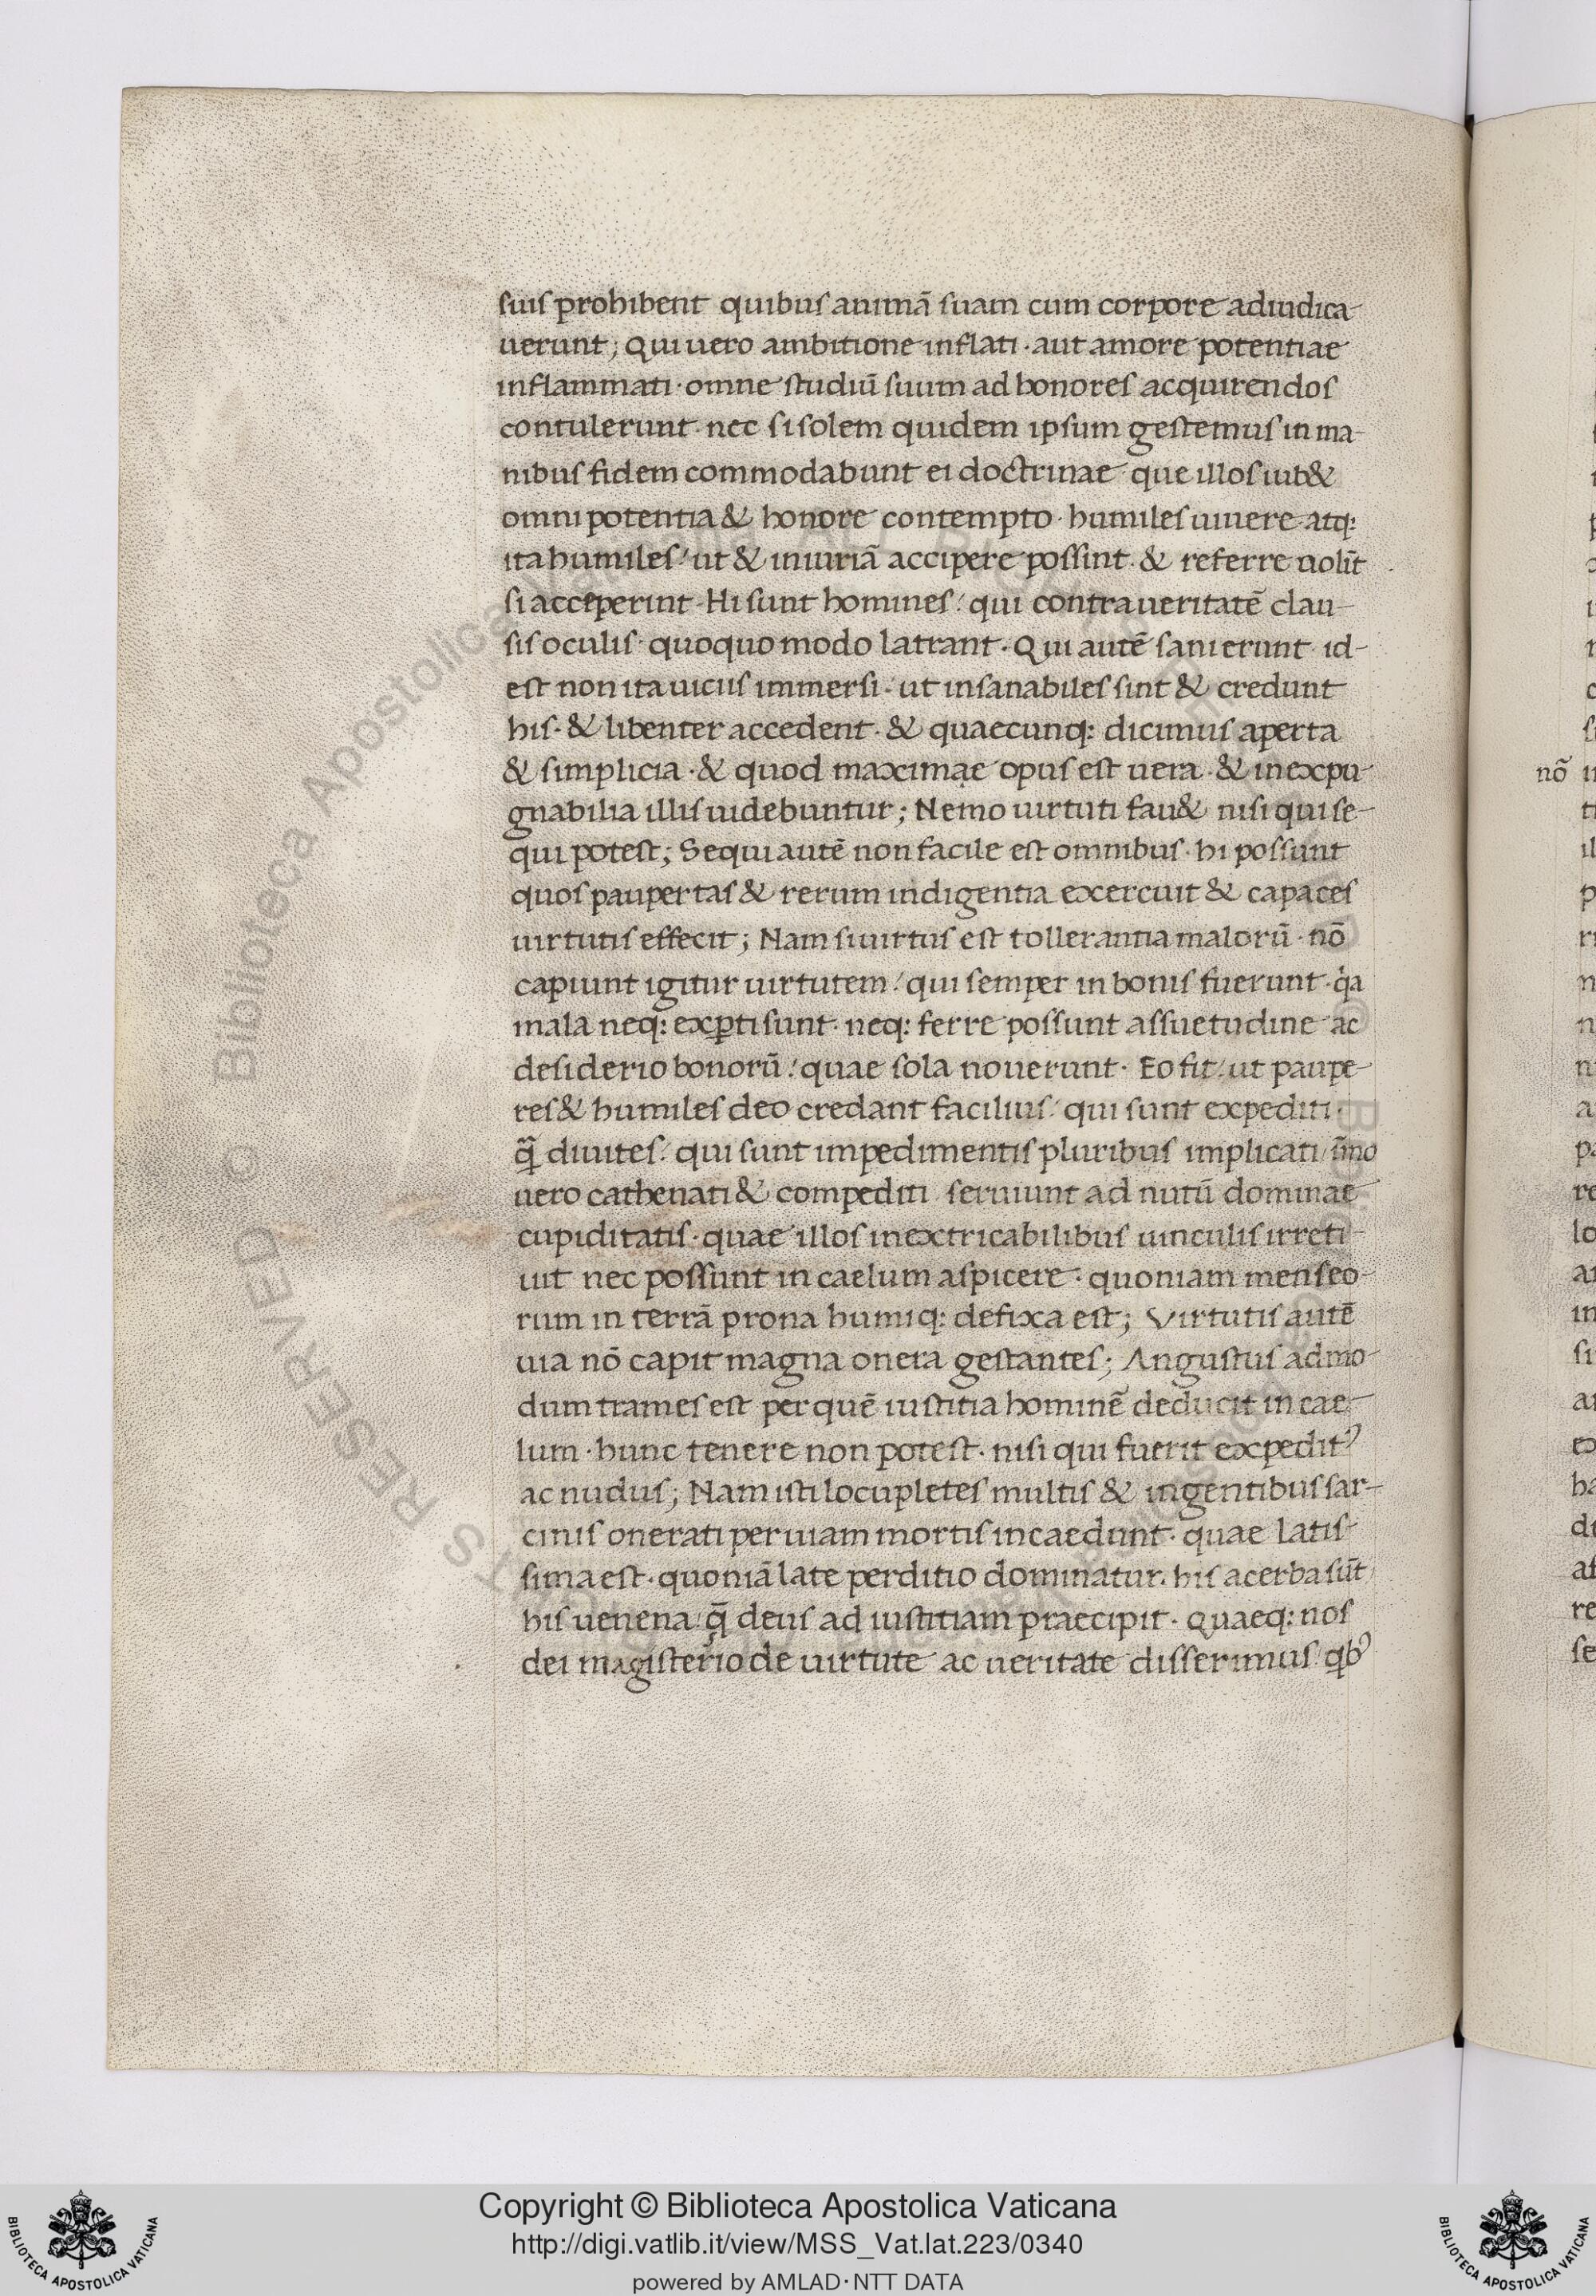 suis prohibent quibus animã suam cum corpore adiudica-
uerunt; Qui uero ambitione inflati · aut amore potentiae
inflammati · omne studiũ suum ad honores acquirendos
contulerunt · nec si solem quidem ipsum gestemus in ma-
nibus fidem commodabunt ei doctrinae · que illos iub&
omni potentia & honore contempto · humiles uiuere atq:
ita humiles / ut & iniuriã accipere possint · & referre nolĩt
si acceperint · Hi sunt homines / qui contra ueritatẽ clau-
sis oculis · quoquo modo latrant · Qui autẽ sani erunt · id-
est non ita uiciis immersi / ut insanabiles sint & credunt
his · & libenter accedent · & quaecunq: dicimus aperta
& simplicia · & quod maximae opus est uera · & inexpu-
gnabilia illis uidebuntur; Nemo uirtuti fau& nisi qui se-
qui potest; Sequi autẽ non facile est omnibus · hi possunt
quos paupertas & rerum indigentia exercuit & capaces
uirtutis effecit; Nam si uirtus est tollerantia malorũ · nõ
capiunt igitur uirtutem / qui semper in bonis fuerunt · q̇a
mala neq: exꝑti sunt · neq: ferre possunt assuetudine ac
desiderio bonorũ / quae sola nouerunt · Eo fit / ut paupe-
res & humiles deo credant facilius / qui sunt expediti ·
q̃ diuites / qui sunt impedimentis pluribus implicati / ĩmo
uero cathenati & compediti seruiunt ad nutũ dominae
cupiditatis · quae illos inextricabilibus uinculis irreti-
uit nec possunt in caelum aspicere · quoniam mens eo-
rum in terrã prona humiq: defixa est; Virtutis autẽ
uia nõ capit magna onera gestantes; Angustus admo-
dum trames est per quẽ iustitia hominẽ deducit in cae-
lum · hunc tenere non potest · nisi qui fuerit expeditꝰ
ac nudus; Nam isti locupletes multis & ingentibus sar-
cinis onerati per uiam mortis incaedunt · quae latis-
sima est · quoniã late perditio dominatur · his acerba sũt
his uenena / q̃ deus ad iustitiam praecipit · Quaeq: nos
dei magisterio de uirtute ac ueritate disserimus / qbꝰ
nõ
Copyright © Biblioteca Apostolica Vaticana
http://digi.vatlib.it/view/MSS_Vat.lat.223/0340
powered by AMLAD · NTT DATA
BIBLIOTECA APOSTOLICA VATICANA
BIBLIOTECA APOSTOLICA VATICANA